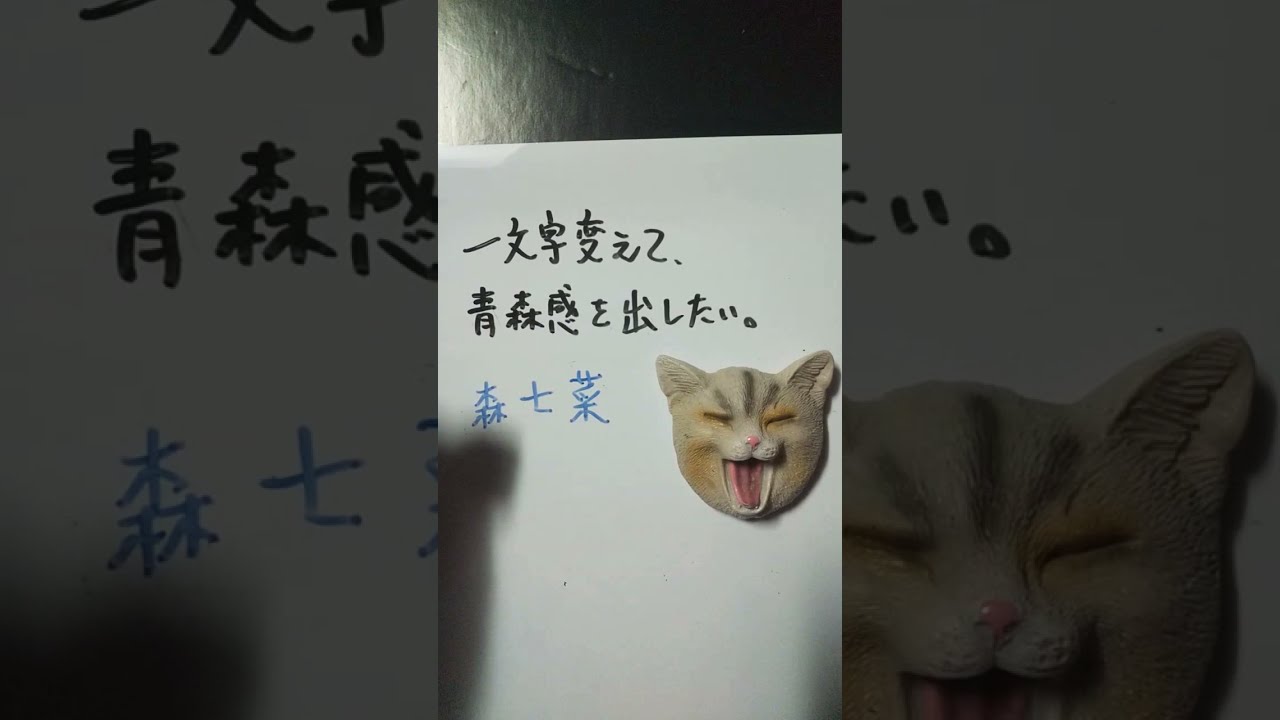 一文字変えて、
青森感を出したい。
森七菜